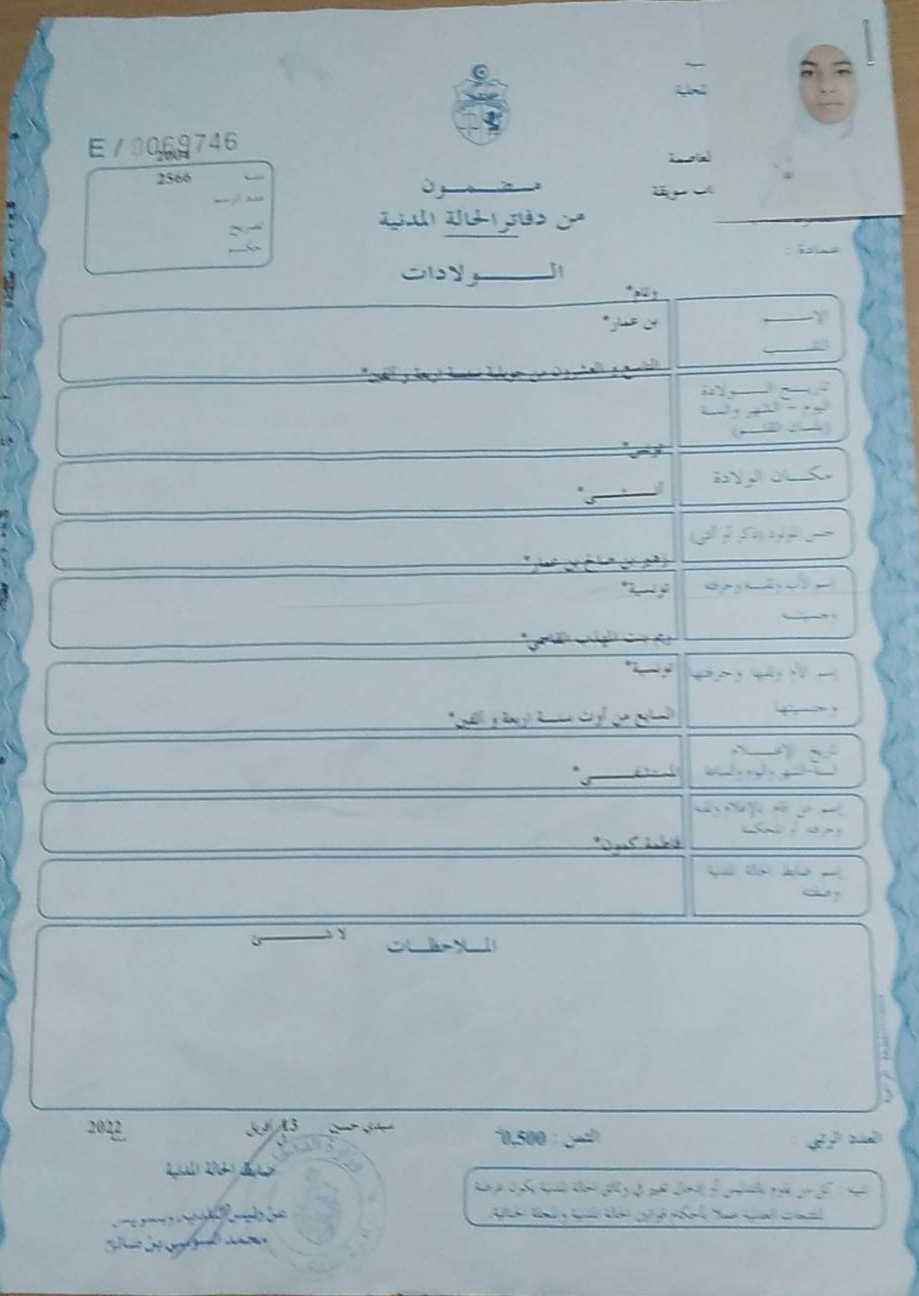 E / 9069746
2004
سنة 2566
عدد الرسم
تصريح
حكم
ـحلية
العاصمة
باب سويقة
عمادة :
مضمون
من دفاتر الحالة المدنية
الولادات
وئام*
الإسم
بن عمار*
اللقب
التاسع و العشرون من جويلية سنة اربعة و ألفين*
تاريخ الولادة
اليوم - الشهر والسنة
(بلسان القلم)
تونس*
مكان الولادة
أنثى*
جنس المولود (ذكر أو أنثى)
زهير بن صالح بن عمار*
إسم الأب ولقبه وحرفته
تونسية*
وجنسيته
ريم بنت المهذب القاسمي*
إسم الأم ولقبها وحرفتها
تونسية*
وجنسيتها
السابع من أوت سنة اربعة و ألفين*
تاريخ الإعلام
السنة-الشهر واليوم والساعة
المستشفى*
إسم من قام بالإعلام ولقبه
وحرفته أو المحكمة
فاطمة كمون*
إسم ضابط الحالة المدنية
وصفته
الملاحظات
لا شيئ
العدد الرتبي :
الثمن : 0.500
سيدي حسين في 13 افريل 2022
ضابط الحالة المدنية
تنبيه : كل من يقوم بالتدليس أو إدخال تغيير في وثائق الحالة المدنية يكون عرضة
للتتبعات العدلية عملا بأحكام قوانين الحالة المدنية والمجلة الجنائية.
محمد السوسي بن صالح